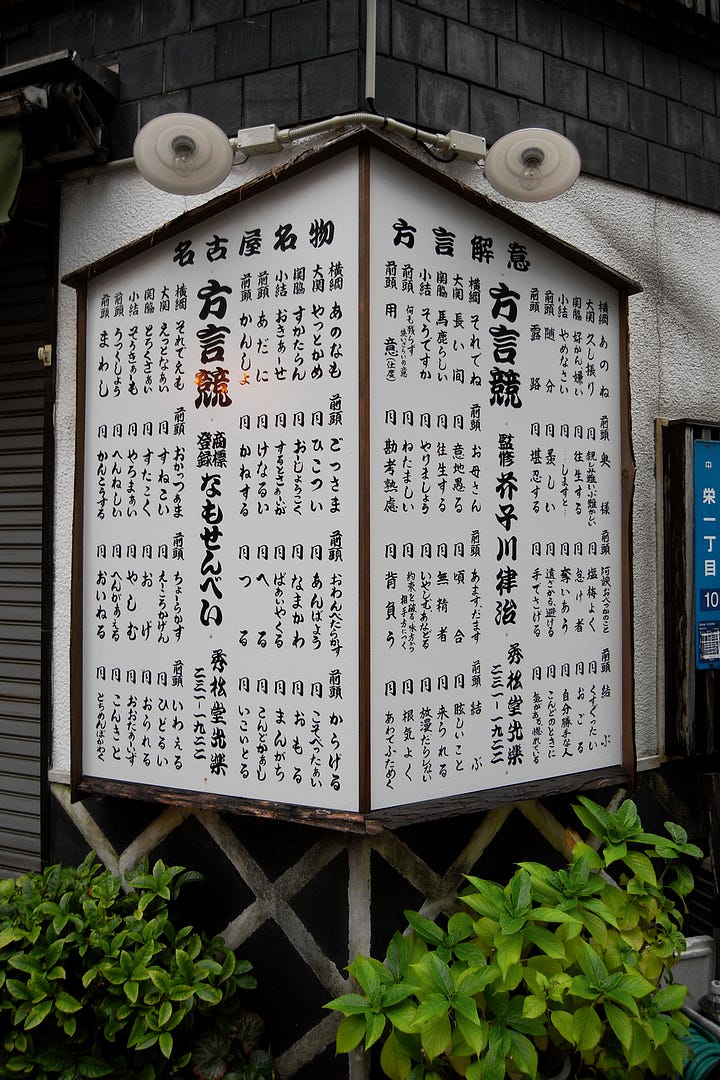 名古屋名物
横綱 あのなも 前頭 ごっさま 前頭 おわんたらかす 前頭 からける
大関 やっとかめ 同 ひこつい 同 あんばよう 同 こそべったぁい
関脇 すかたらん 同 おーじょうこく 同 なまかわ 同 おもる
小結 おきぁーせ 同 同 ばぁいやくる 同 まんがち
前頭 あだに 同 けなるい 同 へる 同 こんどかぁし
前頭 かんしょ 同 かねする 同 つる 同 いこいとる
方言競 商標登録 なもせんべい 秀松堂光楽 二三一-一九二二
横綱 それでえも 前頭 おかっつぁま 前頭 ちょーらかす 前頭 いわえる
大関 えっとなぁい 同 すねこい 同 えーころかげん 同 ひどるい
関脇 とろくさぁい 同 すたこく 同 おげ 同 おられる
小結 そうきぁも 同 やろまぁい 同 やしむ 同 おおだぁいず
前頭 うっくしょう 同 へんねしい 同 へんがぁえる 同 こんきこと
前頭 まわし 同 かんこうする 同 おいねる 同 とちめんぼかわく
方言解意
横綱 あのね 前頭 奥様 前頭 前頭 結ぶ
大関 久し振り 同 同 塩梅よく 同 くすぐったい
関脇 好かん嫌い 同 往生する 同 怠け者 同 おごる
小結 やめなさい 同 …しますと… 同 奪いあう 同 自分勝手な人
前頭 随分 同 羨しい 同 遠ざかる、避ける 同 こんどのときに
前頭 露路 同 堪忍する 同 手でさげる 同 気がある、惚れている
方言競 監修 芥子川律治 秀松堂光楽 二三一-一九二二
横綱 それでね 前頭 お母さん 前頭 あます、だます 前頭 結ぶ
大関 長い間 同 意地悪る 同 頃合 同 眩しいこと
関脇 馬鹿らしい 同 往生する 同 無精者 同 来られる
小結 そうですか 同 やりましょう 同 いやしむ、あなどる 同 放漫だらしない
前頭 何も残らず 同 ねたましい 同 約束を破る 味方から相手方につく 同 根気よく
前頭 用意(仕度) 同 勘考熟慮 同 背負う 同 あわてふためく
中
栄一丁目
10